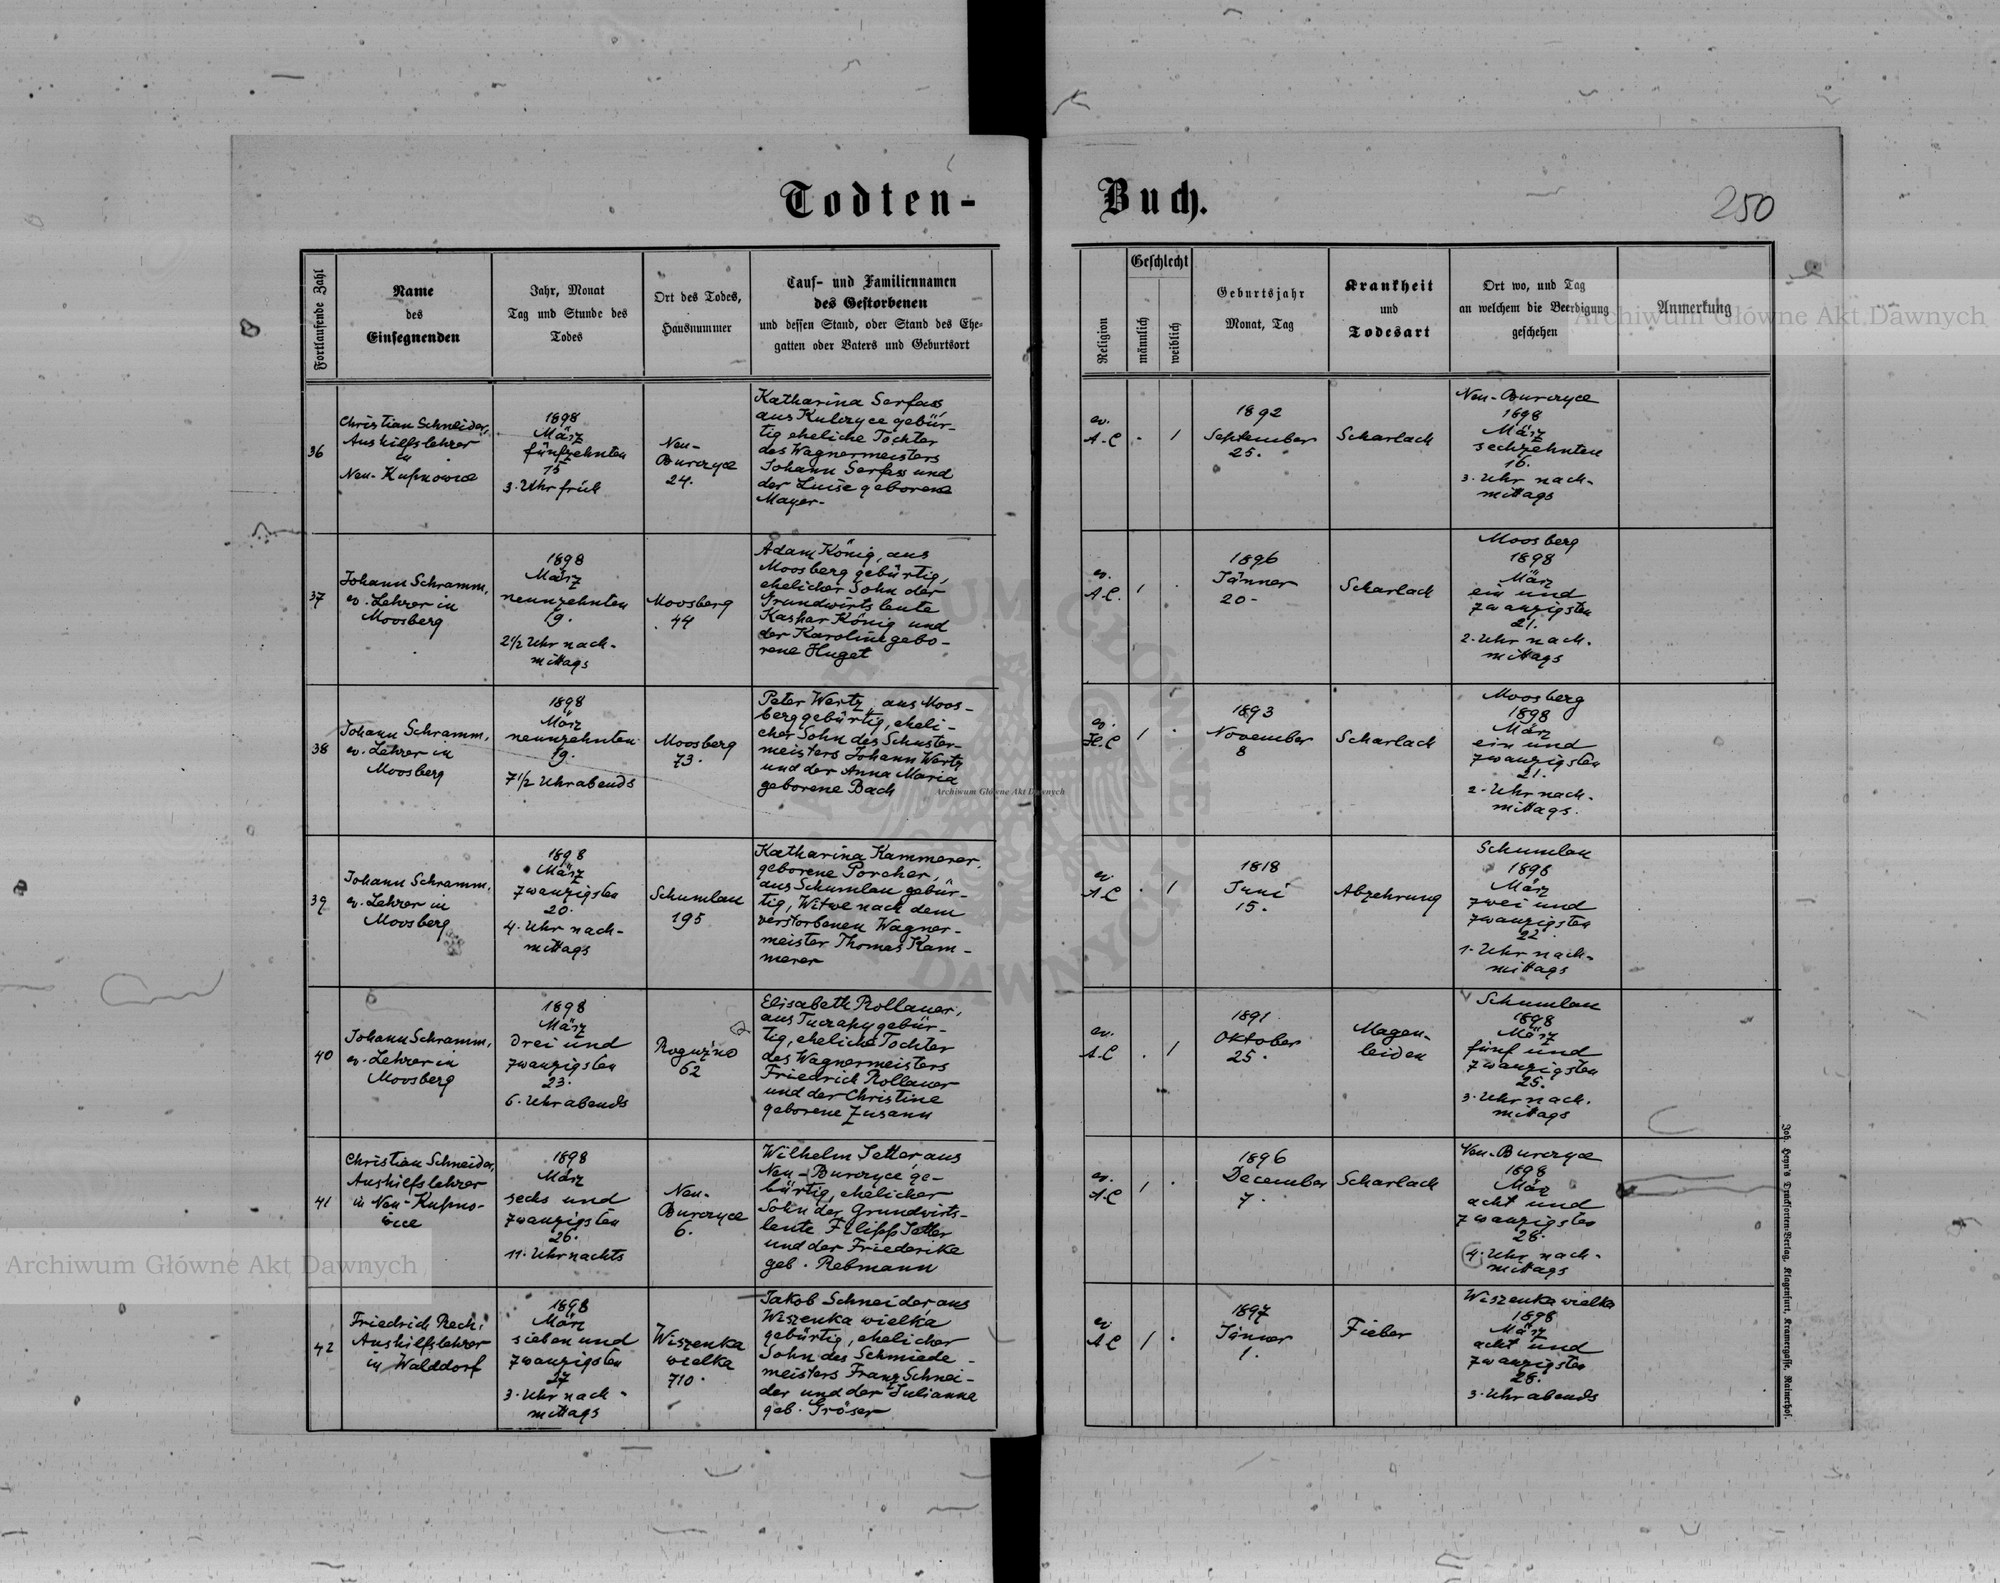 Todten-
Buch.
250
Fortlaufende Zahl
Name
des
Einsegnenden
Jahr, Monat
Tag und Stunde des
Todes
Ort des Todes,
Hausnummer
Tauf- und Familiennamen
des Gestorbenen
und dessen Stand, oder Stand des Ehe-
gatten oder Vaters und Geburtsort
Religion
Geschlecht
männlich
weiblich
Geburtsjahr
Monat, Tag
Krankheit
und
Todesart
Ort wo, und Tag
an welchem die Beerdigung
geschehen
Anmerkung
36
Christian Schneider,
Aushilfslehrer
in
Neu-Kupnowice
1898
März
fünfzehnten
15
3. Uhr früh
Neu-
Burczyce
24.
Katharina Serfass,
aus Kulczyce gebür-
tig eheliche Tochter
des Wagnermeisters
Johann Serfass und
der Luise geborene
Mayer.
ev.
A.C
. 1
1892
September
25.
Scharlach
Neu-Burczyce
1898
März
sechzehnten
16.
3. Uhr nach-
mittags
37
Johann Schramm,
ev. Lehrer in
Moosberg
1898
März
neunzehnten
19.
2 1/2 Uhr nach-
mittags
Moosberg
44
Adam König, aus
Moosberg gebürtig,
ehelicher Sohn der
Grundwirtsleute
Kaspar König und
der Karoline gebo-
rene Huget
ev.
A.C.
1 .
1896
Jänner
20.
Scharlach
Moosberg
1898
März
ein und
zwanzigsten
21.
2. Uhr nach-
mittags
38
Johann Schramm,
ev. Lehrer in
Moosberg
1898
März
neunzehnten
19.
7 1/2 Uhr abends
Moosberg
73.
Peter Wertz, aus Moos-
berg gebürtig, eheli-
cher Sohn des Schuster-
meisters Johann Wertz
und der Anna Maria
geborene Bach
ev.
H.C
1 .
1893
November
8
Scharlach
Moosberg
1898
März
ein und
zwanzigsten
21.
2. Uhr nach-
mittags.
39
Johann Schramm,
ev. Lehrer in
Moosberg
1898
März
zwanzigsten
20.
4. Uhr nach-
mittags
Schumlau
195
Katharina Kammerer,
geborene Porcher,
aus Schumlau gebür-
tig, Witwe nach dem
verstorbenen Wagner-
meister Thomas Kam-
merer
ev.
A.C
. 1
1818
Juni
15.
Abzehrung
Schumlau
1898
März
zwei und
zwanzigsten
22.
1. Uhr nach-
mittags
40
Johann Schramm,
ev. Lehrer in
Moosberg
1898
März
drei und
zwanzigsten
23.
6. Uhr abends
Roguźno
62
Elisabeth Rollauer,
aus Tucrapy gebür-
tig, eheliche Tochter
des Wagnermeisters
Friedrich Rollauer
und der Christine
geborene Zusann
ev.
A.C
. 1
1891
Oktober
25.
Magen-
leiden
Schumlau
1898
März
fünf und
zwanzigsten
25.
3. Uhr nach-
mittags
41
Christian Schneider,
Aushilfslehrer
in Neu-Kupno-
wice
1898
März
sechs und
zwanzigsten
26.
11. Uhr nachts
Neu-
Burczyce
6.
Wilhelm Jetter, aus
Neu-Burczyce ge-
bürtig, ehelicher
Sohn der Grundwirts-
leute Filipp Jetter
und der Friederike
geb. Rebmann
ev.
A.C
1 .
1896
December
7.
Scharlach
Neu-Burczyce
1898
März
acht und
zwanzigsten
28.
4. Uhr nach-
mittags
42
Friedrich Rech,
Aushilfslehrer
in Walddorf
1898
März
sieben und
zwanzigsten
27
3. Uhr nach-
mittags
Wiszenka
wielka
710.
Jakob Schneider, aus
Wiszenka wielka
gebürtig, ehelicher
Sohn des Schmiede-
meisters Franz Schnei-
der und der Julianne
geb. Gröser
ev.
A.C
1 .
1897
Jänner
1.
Fieber
Wiszenka wielka
1898
März
acht und
zwanzigsten
28.
3. Uhr abends
Joh. Heyn's Drucksorten-Verlag, Klagenfurt, Kramergasse, Rainerhof.
Archiwum Główne Akt Dawnych
Archiwum Główne Akt Dawnych
Archiwum Główne Akt Dawnych